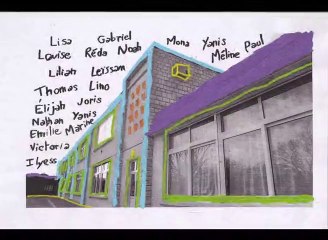 Lisa Gabriel
Louise Réda Noah
Mona Yanis
Méline Paul
Lilian Leïssam
Thomas Lino
Élijah Joris
Nathan Yanis
Emilie Marine
Victoria
Ilyess